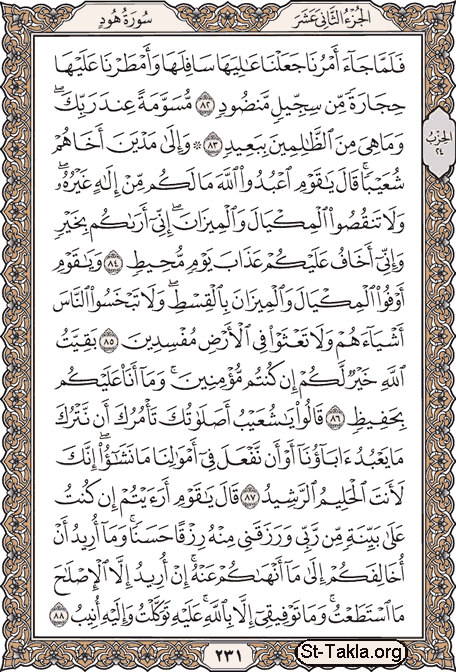 الجزء الثاني عشر
سورة هود
فَلَمَّا جَآءَ أَمْرُنَا جَعَلْنَا عَٰلِيَهَا سَافِلَهَا وَأَمْطَرْنَا عَلَيْهَا
حِجَارَةً مِّن سِجِّيلٍ مَّنضُودٍ ۝٨٢ مُّسَوَّمَةً عِندَ رَبِّكَۖ
وَمَا هِيَ مِنَ ٱلظَّٰلِمِينَ بِبَعِيدٍ ۝٨٣ ۞ وَإِلَىٰ مَدْيَنَ أَخَاهُمْ
الحزب ٢٤
شُعَيْبًاۚ قَالَ يَٰقَوْمِ ٱعْبُدُوا۟ ٱللَّهَ مَا لَكُم مِّنْ إِلَٰهٍ غَيْرُهُۥۖ
وَلَا تَنقُصُوا۟ ٱلْمِكْيَالَ وَٱلْمِيزَانَۖ إِنِّيٓ أَرَىٰكُم بِخَيْرٍ
وَإِنِّيٓ أَخَافُ عَلَيْكُمْ عَذَابَ يَوْمٍ مُّحِيطٍ ۝٨٤ وَيَٰقَوْمِ
أَوْفُوا۟ ٱلْمِكْيَالَ وَٱلْمِيزَانَ بِٱلْقِسْطِۖ وَلَا تَبْخَسُوا۟ ٱلنَّاسَ
أَشْيَآءَهُمْ وَلَا تَعْثَوْا۟ فِي ٱلْأَرْضِ مُفْسِدِينَ ۝٨٥ بَقِيَّتُ
ٱللَّهِ خَيْرٌ لَّكُمْ إِن كُنتُم مُّؤْمِنِينَۚ وَمَآ أَنَا۠ عَلَيْكُم
بِحَفِيظٍ ۝٨٦ قَالُوا۟ يَٰشُعَيْبُ أَصَلَوٰتُكَ تَأْمُرُكَ أَن نَّتْرُكَ
مَا يَعْبُدُ ءَابَآؤُنَآ أَوْ أَن نَّفْعَلَ فِيٓ أَمْوَٰلِنَا مَا نَشَٰٓؤُا۟ۖ إِنَّكَ
لَأَنتَ ٱلْحَلِيمُ ٱلرَّشِيدُ ۝٨٧ قَالَ يَٰقَوْمِ أَرَءَيْتُمْ إِن كُنتُ
عَلَىٰ بَيِّنَةٍ مِّن رَّبِّي وَرَزَقَنِي مِنْهُ رِزْقًا حَسَنًاۚ وَمَآ أُرِيدُ أَنْ
أُخَالِفَكُمْ إِلَىٰ مَآ أَنْهَىٰكُمْ عَنْهُۚ إِنْ أُرِيدُ إِلَّا ٱلْإِصْلَٰحَ
مَا ٱسْتَطَعْتُۚ وَمَا تَوْفِيقِيٓ إِلَّا بِٱللَّهِۚ عَلَيْهِ تَوَكَّلْتُ وَإِلَيْهِ أُنِيبُ ۝٨٨
٢٣١
St-Takla.org